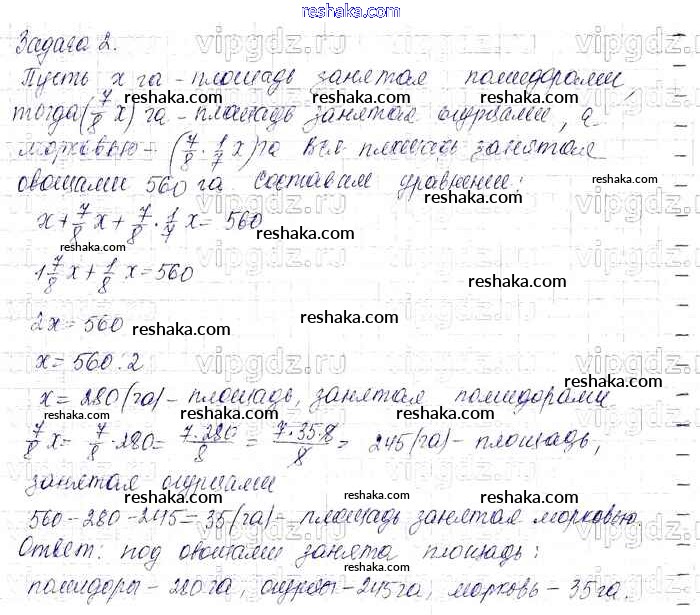 reshaka.com
Задача 2.
Пусть x га - площадь занятая помидорами,
тогда (7/8 x) га - площадь занятая огурцами, а
морковью - (7/8 · 1/7 x) га Вся площадь занятая
овощами 560 га. Составим уравнение:
x + 7/8 x + 7/8 · 1/7 x = 560
1 7/8 x + 1/8 x = 560
2x = 560
x = 560:2
x = 280 (га) - площадь, занятая помидорами
7/8 x = 7/8 · 280 = 7·280/8 = 7·35·8/8 = 245 (га) - площадь,
занятая огурцами
560 - 280 - 245 = 35 (га) - площадь занятая морковью.
Ответ: под овощами занята площадь:
помидоры - 280 га, огурцы - 245 га, морковь - 35 га.
vipgdz.ru
reshaka.com